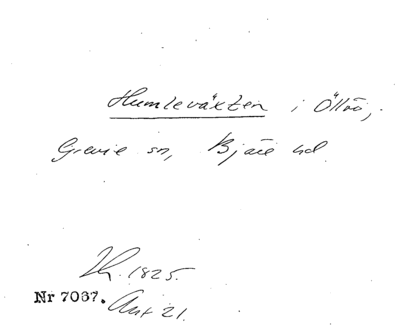 Humleväxten i Öllöv,
Grevie sn, Bjäre hd
1825.
Nr 7037. Ant 21.